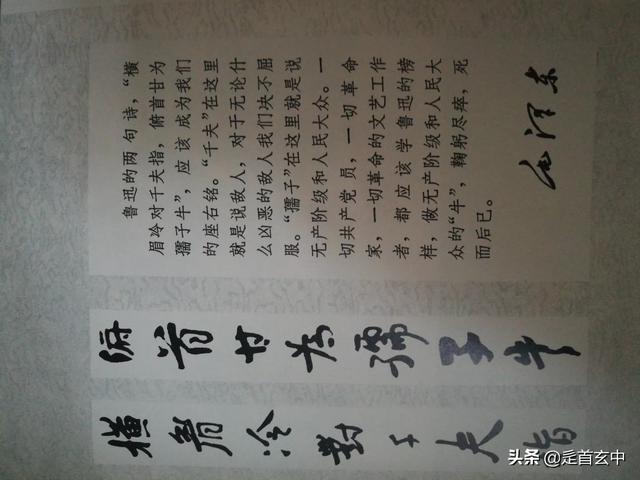 鲁迅的两句诗，“横
眉冷对千夫指，俯首甘为
孺子牛”，应该成为我们
的座右铭。“千夫”在这里
就是说敌人，对于无论什
么凶恶的敌人我们决不屈
服。“孺子”在这里就是说
无产阶级和人民大众。一
切共产党员，一切革命
家，一切革命的文艺工作
者，都应该学鲁迅的榜
样，做无产阶级和人民大
众的“牛”，鞠躬尽瘁，死
而后已。
毛泽东
橫眉冷對千夫指
俯首甘為孺子牛
头条 @辵首玄中